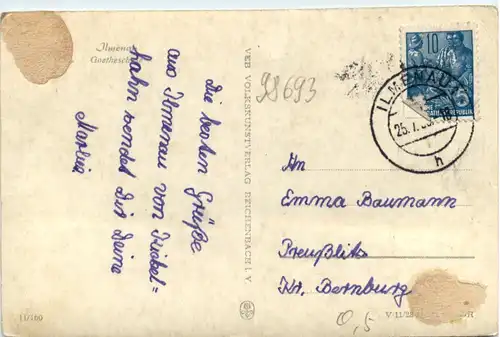 Ilmenau
Goethesch
Die besten Grüße
aus Ilmenau von Kickel=
hahn sendet Dir Deine
Marlise
98693
VEB VOLKSKUNSTVERLAG REICHENBACH I. V.
10
ILMENAU
25.7.
h
An
Emma Baumann
Preußlitz
Kr. Bernburg
0,5
11/160
V 11/28